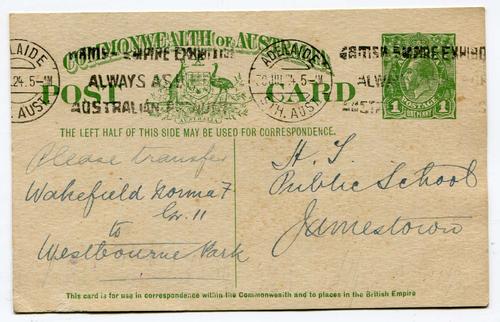 COMMONWEALTH OF AUSTRALIA
POST CARD
POSTAGE
1 1
ONE PENNY
BRITISH EMPIRE EXHIBITION
ALWAYS ASK
AUSTRALIAN
ADELAIDE
5-PM
STH. AUST
THE LEFT HALF OF THIS SIDE MAY BE USED FOR CORRESPONDENCE.
Please transfer
Wakefield Norma F
Gr. II
to
Westbourne Park
H. T.
Public School
Jamestown
This card is for use in correspondence within the Commonwealth and to places in the British Empire